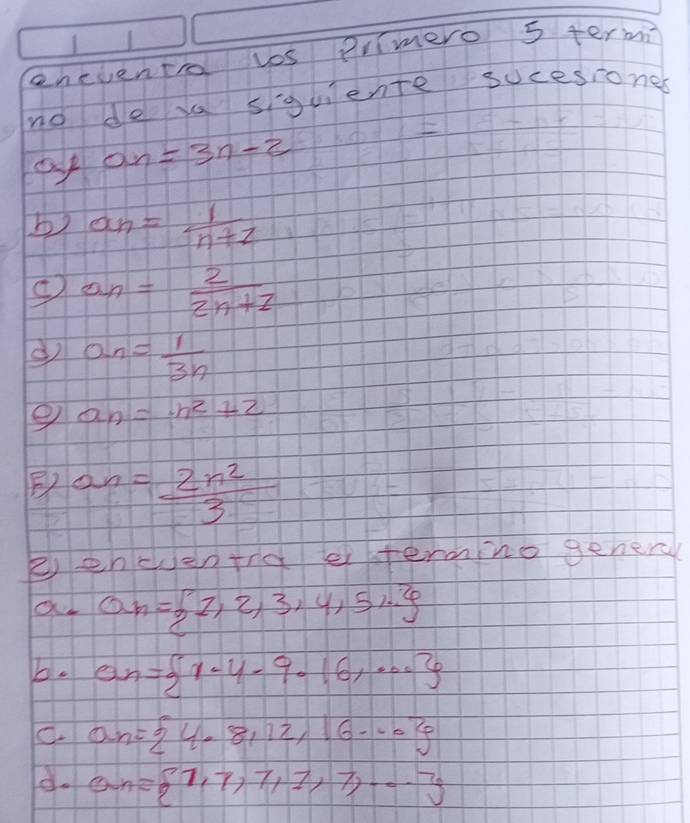 encuentra los primero 5 termi
no de la siguiente sucesiones
a) an = 3n - 2 =
b) an = 1/n+1
c) an = 2/2n+1
d) an = 1/3n
e) an = n² + 2
F) an = 2n²/3
2) encuentra el termino general
a. an = {1, 2, 3, 4, 5, ..}
b. an = {1 - 4 - 9 - 16, ....}
c. an = {4. 8, 12, 16 ...}
d. an = {7, 7, 7, 7, 7, ...}